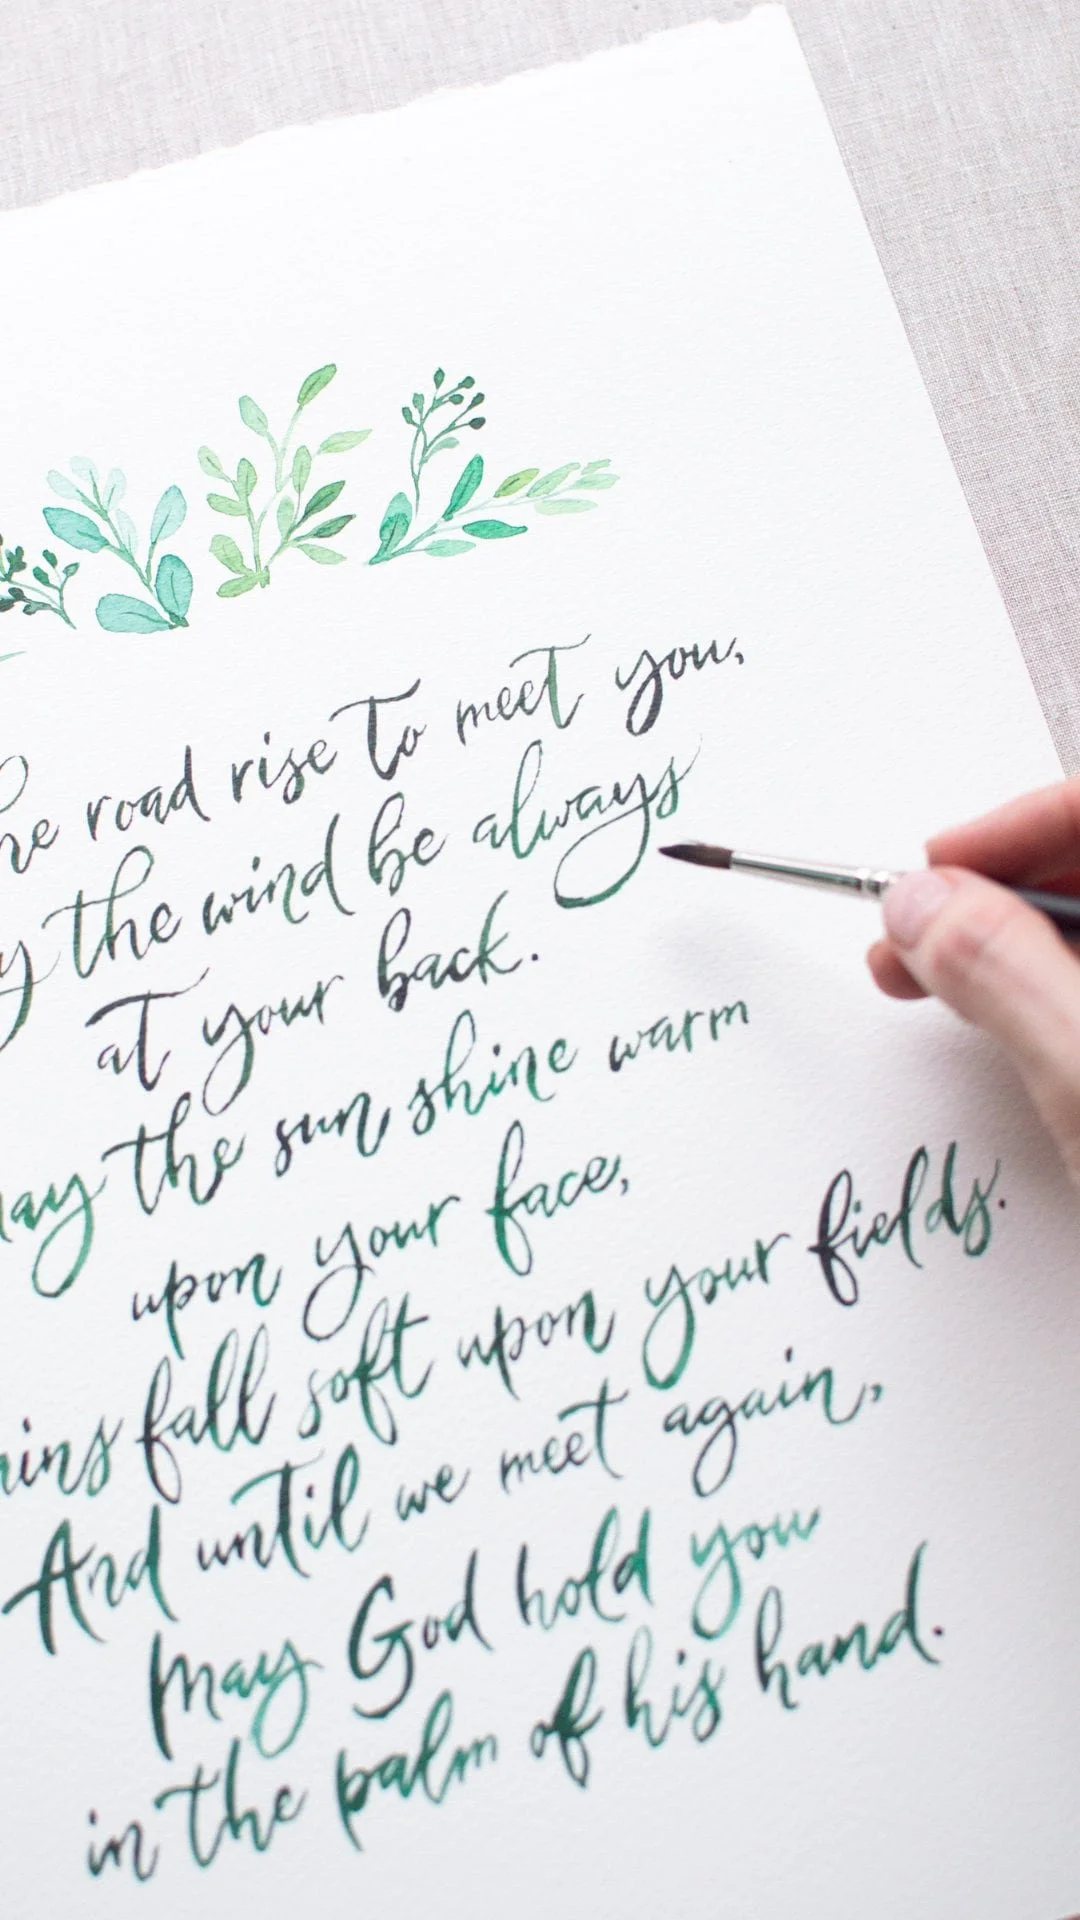 he road rise to meet you,
y the wind be always
at your back.
ay the sun shine warm
upon your face,
ins fall soft upon your fields.
And until we meet again,
may God hold you
in the palm of his hand.